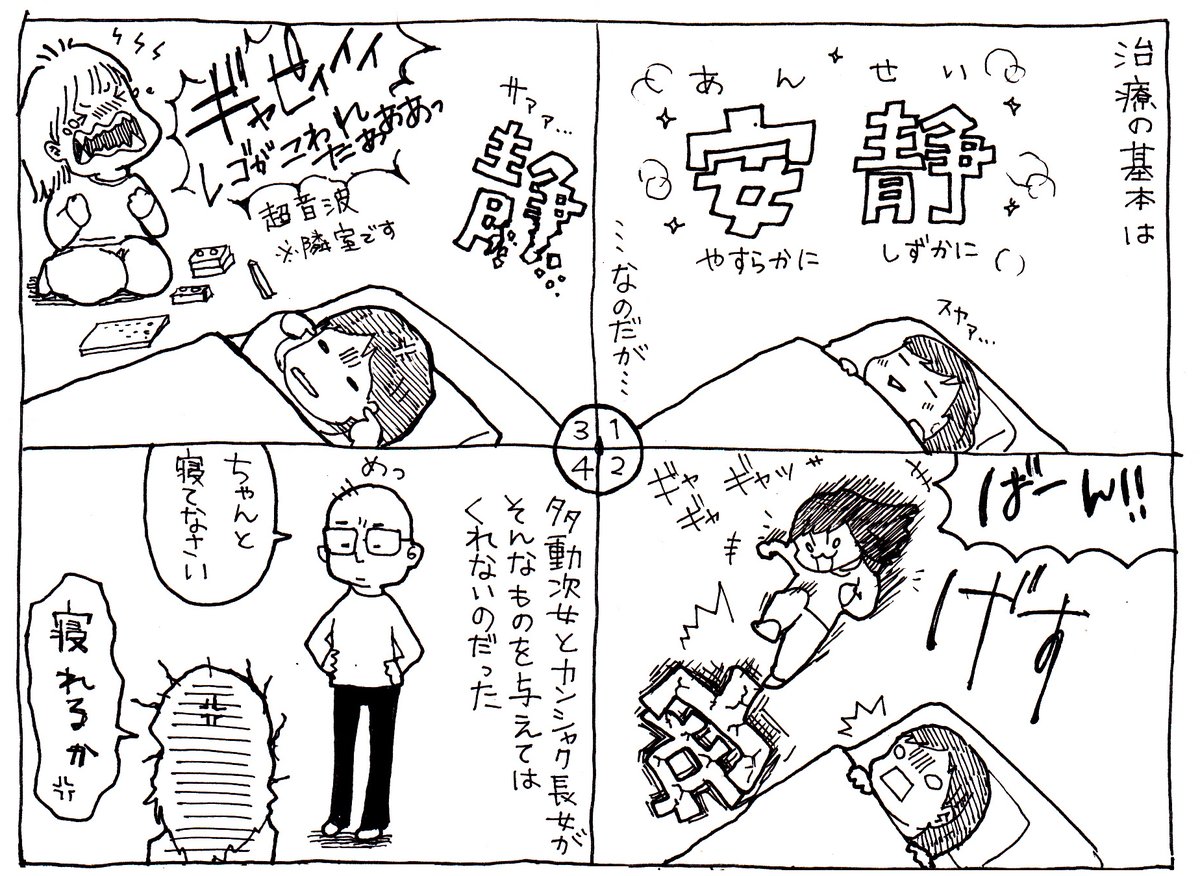 治療の基本は
あんせい
安静
やすらかに
しずかに
……なのだが…
スヤァ…
1
ばーん!!
ギャギャギャギャッ
げす
安
2
ギャピィィィィ
レゴがこわれ
たぁぁああっ
超音波
※隣室です
サァァ…
静
3
めっ
多動次女とカンシャク長女が
そんなものを与えては
くれないのだった
ちゃんと
寝てなさい
寝れるか
4